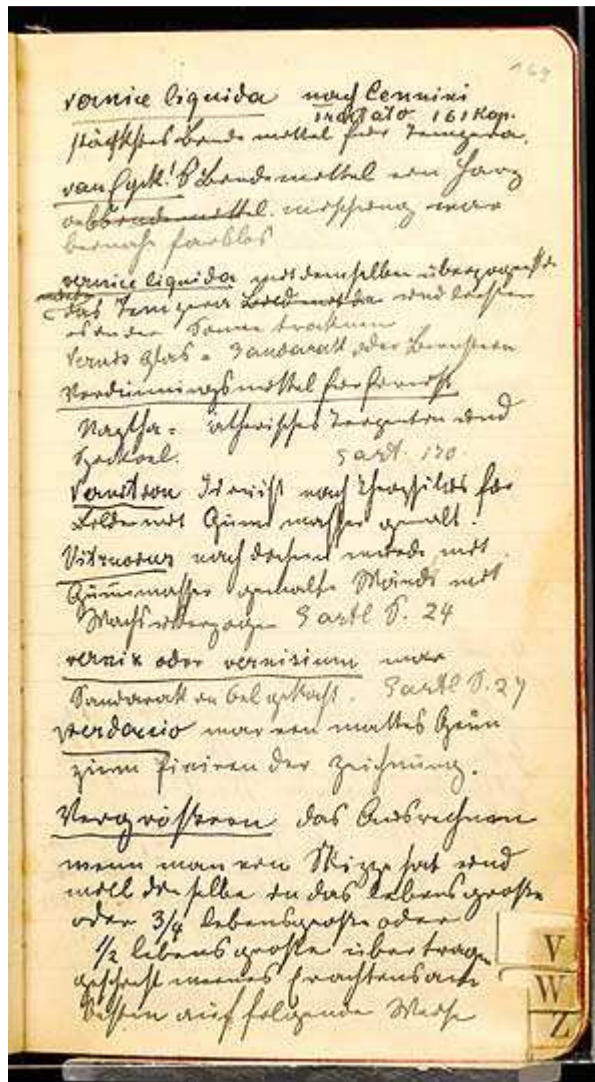 169
vernice liquida nach Cennini
tractato 161 Kap.
stärkstes Bindemittel für Tempera.
van Eyck! Bindemittel ein Harz
mischung war
beinahe farblos
vernice liquida mit demselben überzog
das Tempera und ließen
es an der Sonne trocknen
Vernis glas = Sandarak oder Bernstein
Verdünnungsmittel für Firnisse
Naphta = ätherisches Terpentin und
Spicköl. Gartl. 170.
nach Theophilus für
Bilder mit Gummiwasser gemalt.
Vitruvius nach diesem wurde mit
Gummiwasser gemalte Wände mit
Wachs überzogen Gartl S. 24
vernix oder vernisium war
Sandarak in Oel gekocht. Gartl S. 27
verdaccio war ein mattes Grün
zum fixiren der Zeichnung.
Vergrößern das Ausrechnen
wenn man ein Skizze hat und
will dieselbe in das lebensgroße
oder 3/4 lebensgroße oder
1/2 lebensgroße übertragen
geschieht meines Erachtens am
besten auf folgende Weise
V
W
Z